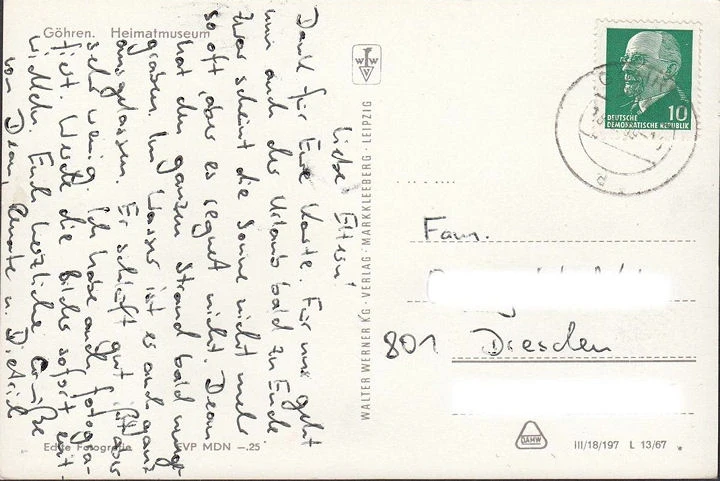 Göhren. Heimatmuseum
Liebe Eltern!
Dank für Eure Karte. Für uns geht
nun auch der Urlaub bald zu Ende
Zwar scheint die Sonne nicht mehr
so oft, aber es regnet nicht. Dean
hat den ganzen Strand bald umge-
graben. Im Wasser ist er auch ganz
ausgelassen. Er schläft gut ißt aber
sehr wenig. Ich habe auch fotogra-
fiert. Werde die Bilder sofort ent-
wickeln. Euch herzliche Grüße
von Dean, Renate u. Dietrich
Echte Fotografie EVP MDN –.25
WALTER WERNER KG · VERLAG · MARKKLEEBERG · LEIPZIG
W W
V
DEUTSCHE
DEMOKRATISCHE REPUBLIK
10
Fam.
801 Dresden
DAMW
III/18/197 L 13/67